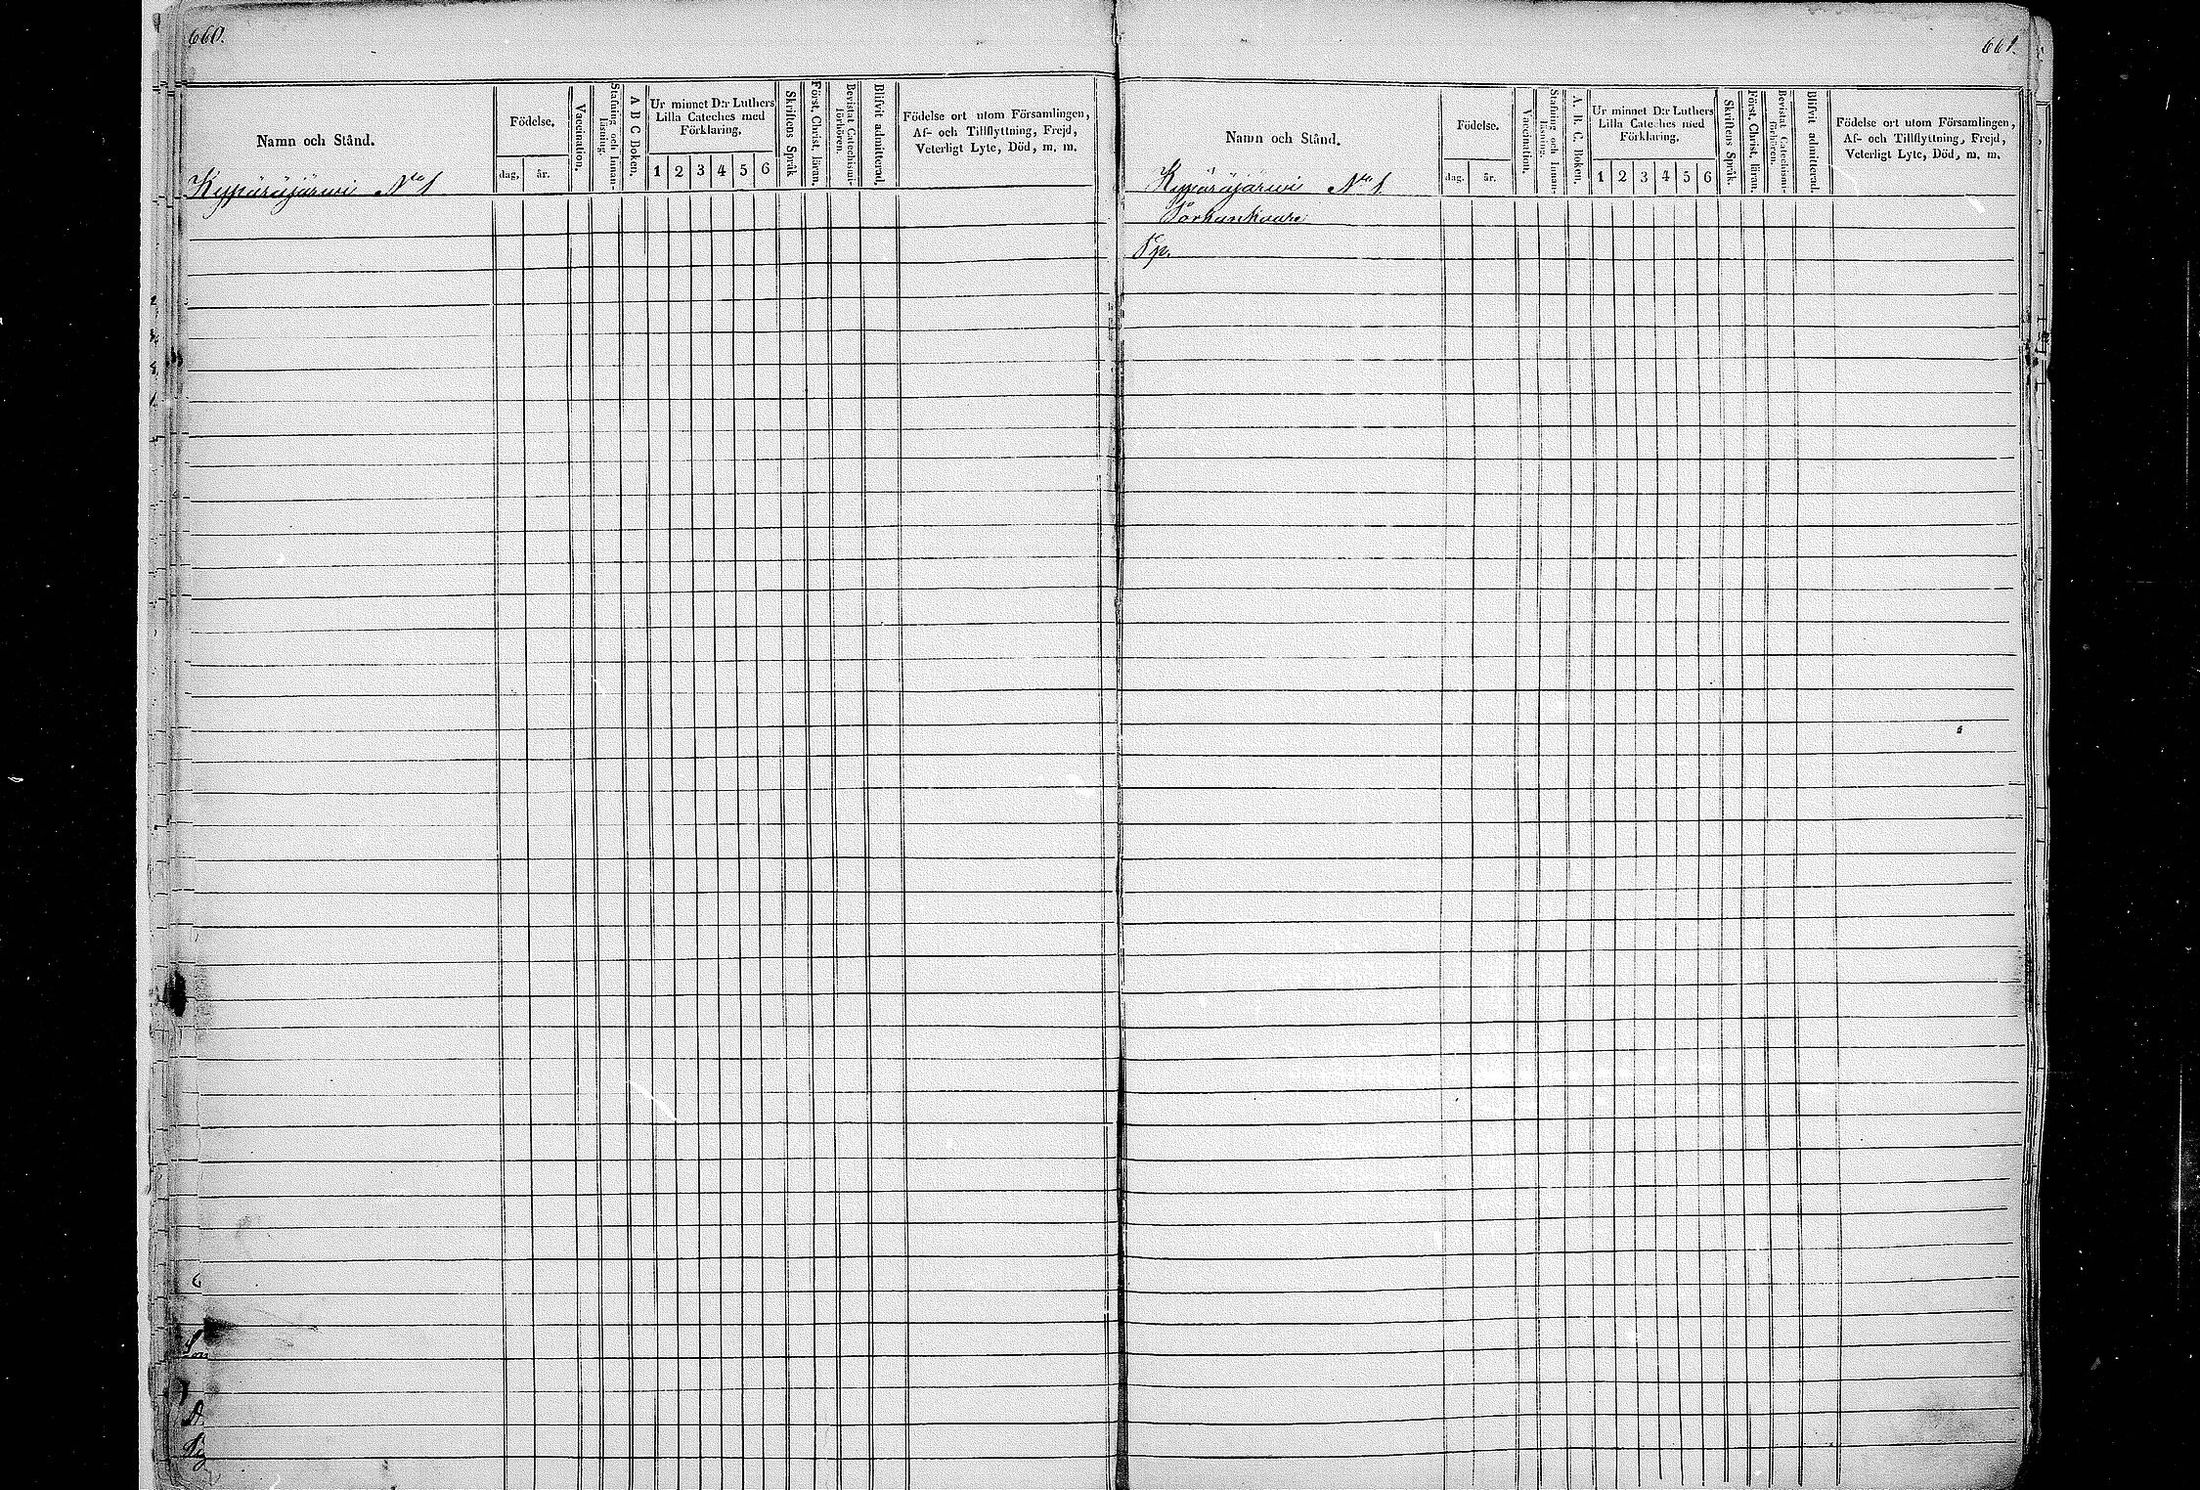 660.
Namn och Stånd.
Födelse.
dag.
år.
Vaccination.
Stafning och Innan-läsning.
A B C Boken.
Ur minnet D:r Luthers
Lilla Cateches med
Förklaring.
1 2 3 4 5 6
Skriftens Språk
Först. Christ. läran.
Bevistat Catechismi-förhören.
Blifvit admitterad.
Födelse ort utom Församlingen,
Af- och Tillflyttning, Frejd,
Veterligt Lyte, Död, m. m.
Kypäräjärwi No 1
661.
Namn och Stånd.
Födelse.
dag.
år.
Vaccination.
Stafning och Innan-läsning.
A. B. C. Boken.
Ur minnet D:r Luthers
Lilla Cateches med
Förklaring.
1 2 3 4 5 6
Skriftens Språk.
Först. Christ. läran.
Bevistat Catechismi-förhören.
Blifvit admitterad
Födelse ort utom Församlingen,
Af- och Tillflyttning, Frejd,
Veterligt Lyte, Död, m. m.
Kypäräjärwi No 1